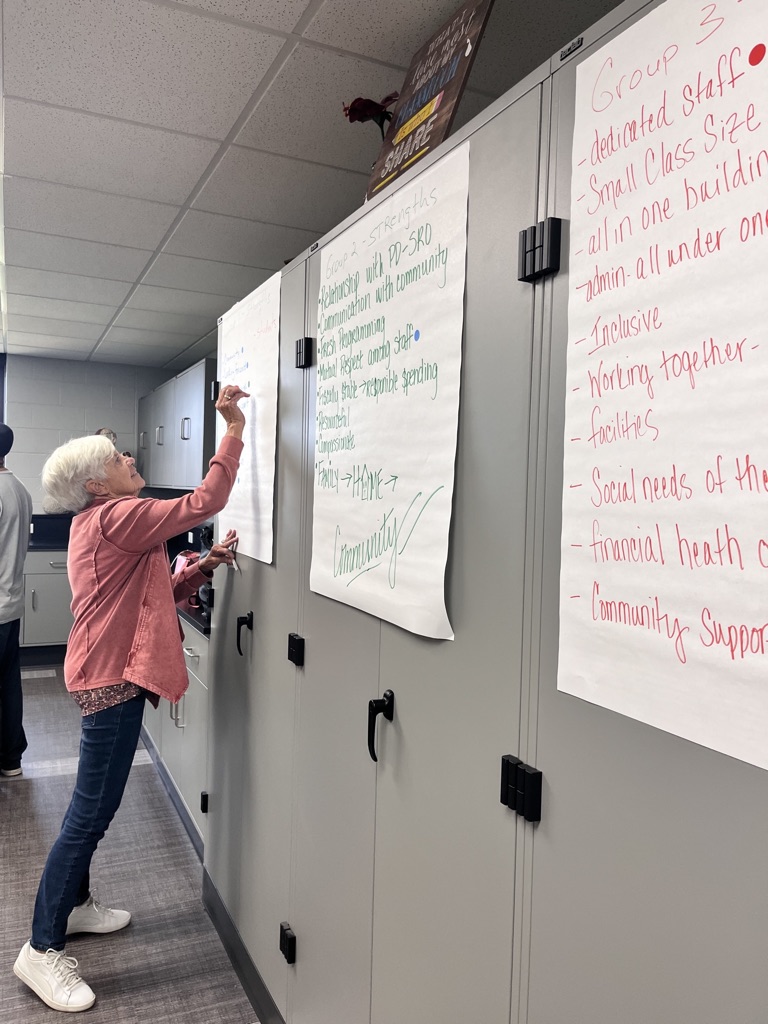 SHARE
Group 2 - STRENGTHS
• Relationship with PD-SRO
• Communication with community
• Fresh Programming
• Mutual Respect among staff
• Fiscally stable → responsible spending
• Resourceful
• Compassionate
• Family → HOME →
Community
Group 3 -
- dedicated Staff
- Small Class Size
- all in one buildin
- admin - all under one
- Inclusive
- Working together -
- facilities
- Social needs of the
- financial heath
- Community Suppor